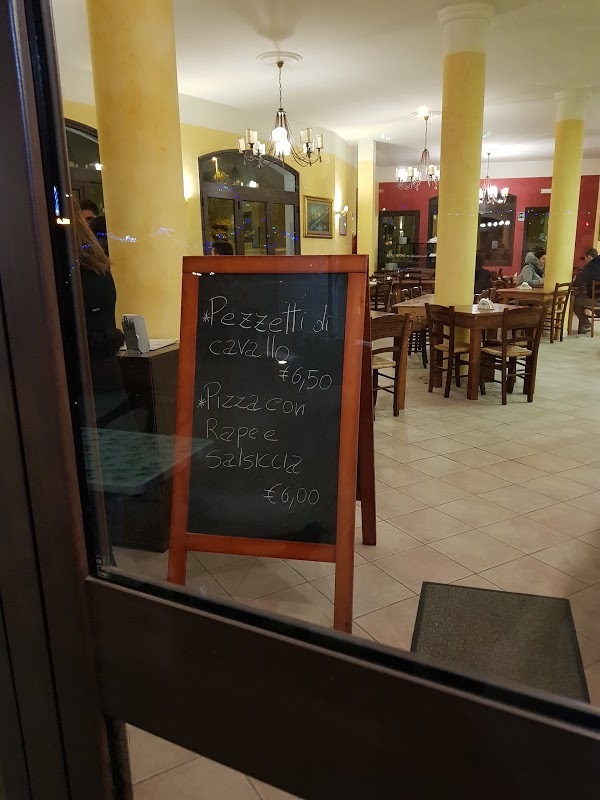 *Pezzetti di
cavallo
€6,50
*Pizza con
Rape e
Salsiccia
€6,00